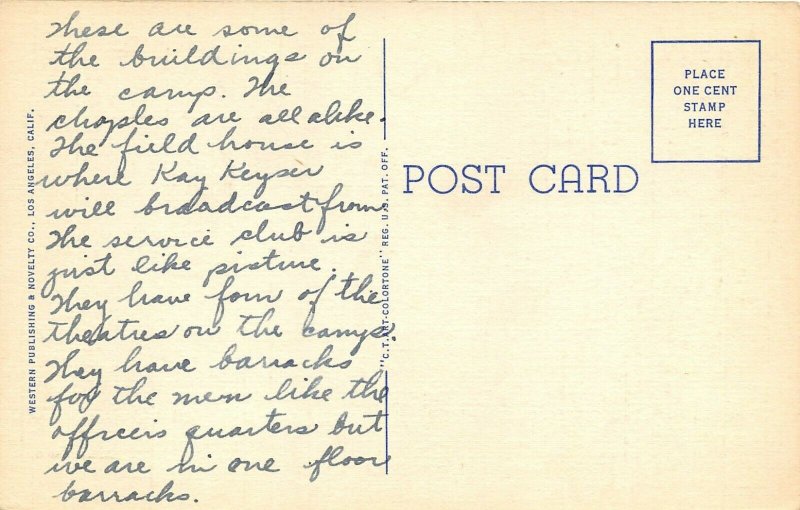 These are some of
the buildings on
the camp. The
chaples are all alike.
The field house is
where Kay Keyser
will broadcast from
The service club is
just like pisture.
They have four of the
theatres on the camp.
They have barracks
for the men like the
officeis quarters but
we are in one floor
barracks.
WESTERN PUBLISHING & NOVELTY CO., LOS ANGELES, CALIF.
"C.T. ART-COLORTONE" REG. U.S. PAT. OFF.
POST CARD
PLACE
ONE CENT
STAMP
HERE